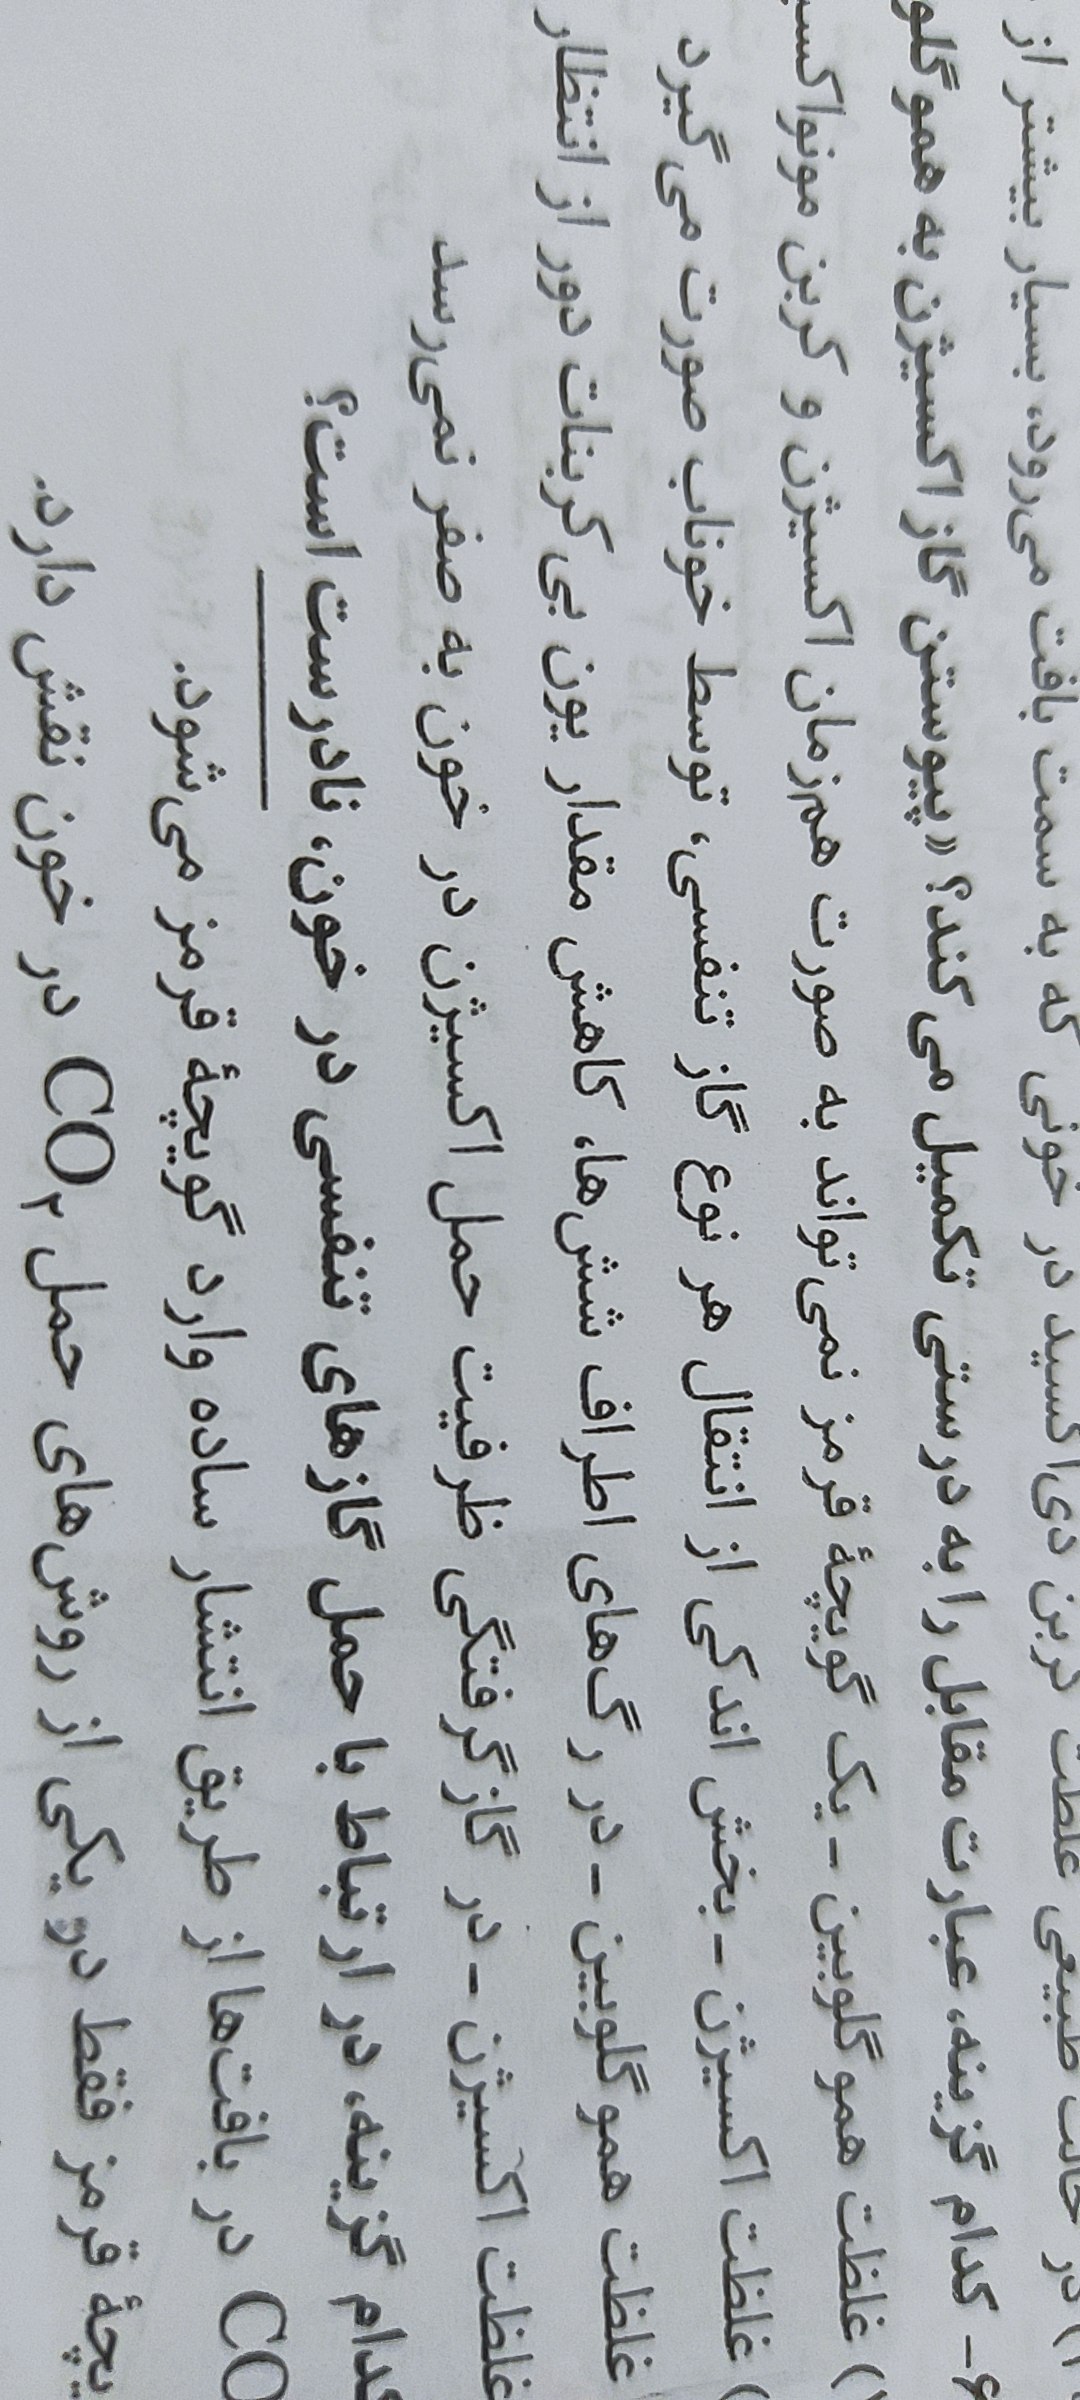 در حالت طبیعی غلظت کربن دی‌اکسید در خونی که به سمت بافت می‌رود، بسیار بیشتر از
۶- کدام گزینه، عبارت مقابل را به درستی تکمیل می کند؟ «پیوستن گاز اکسیژن به
۱) غلظت هموگلوبین - یک گویچهٔ قرمز نمی‌تواند به صورت هم‌زمان اکسیژن و کربن
) غلظت اکسیژن - بخش اندکی از انتقال هر نوع گاز تنفسی، توسط خوناب صورت می گیرد
غلظت هموگلوبین - در رگ‌های اطراف شش‌ها، کاهش مقدار یون بی کربنات دور از انتظار
غلظت اکسیژن - در گازگرفتگی ظرفیت حمل اکسیژن در خون به صفر نمی‌رسد
کدام گزینه، در ارتباط با حمل گازهای تنفسی در خون، نادرست است؟
CO در بافت‌ها از طریق انتشار ساده وارد گویچهٔ قرمز می‌شود.
قرمز فقط در یکی از روش‌های حمل CO۲ در خون نقش دارد.